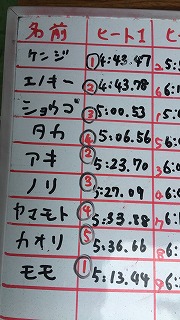 名前 ヒートI ヒ
ケンジ ①4:43.47 ②5:
エノキー ②4:43.78 6:
ショウゴ ③5:00.53 5:
タカ ④5:06.56 5:
アキ ②5:23.70 6:
ノリ ③5:27.09 6:
ヤマモト ④5:33.88 6:
カオリ ⑤5:36.66 6:
モモ ①5:13.44 5: